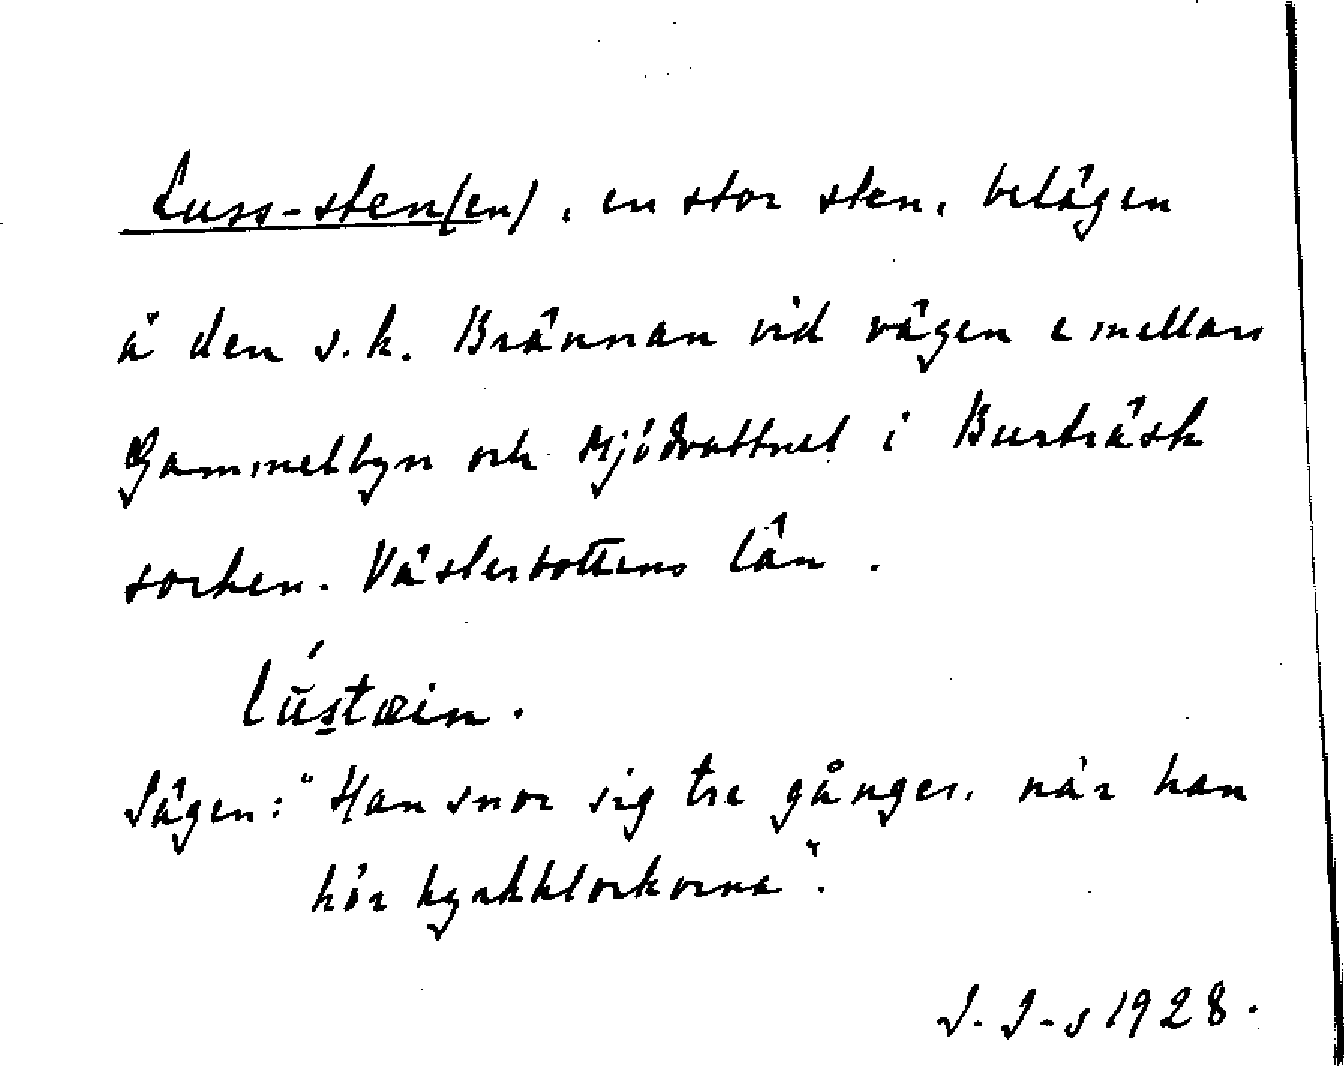 Luss-sten(en), en stor sten, belägen
å den s.k. Brännan vid vägen emellan
Gammelbyn och Mjödvattnet i Burträsk
socken. Västerbottens län.
lústæin.
Sägen: "Han snor sig tre gånger, når han
hör kyrkklockorna".
J. J-s 1928.